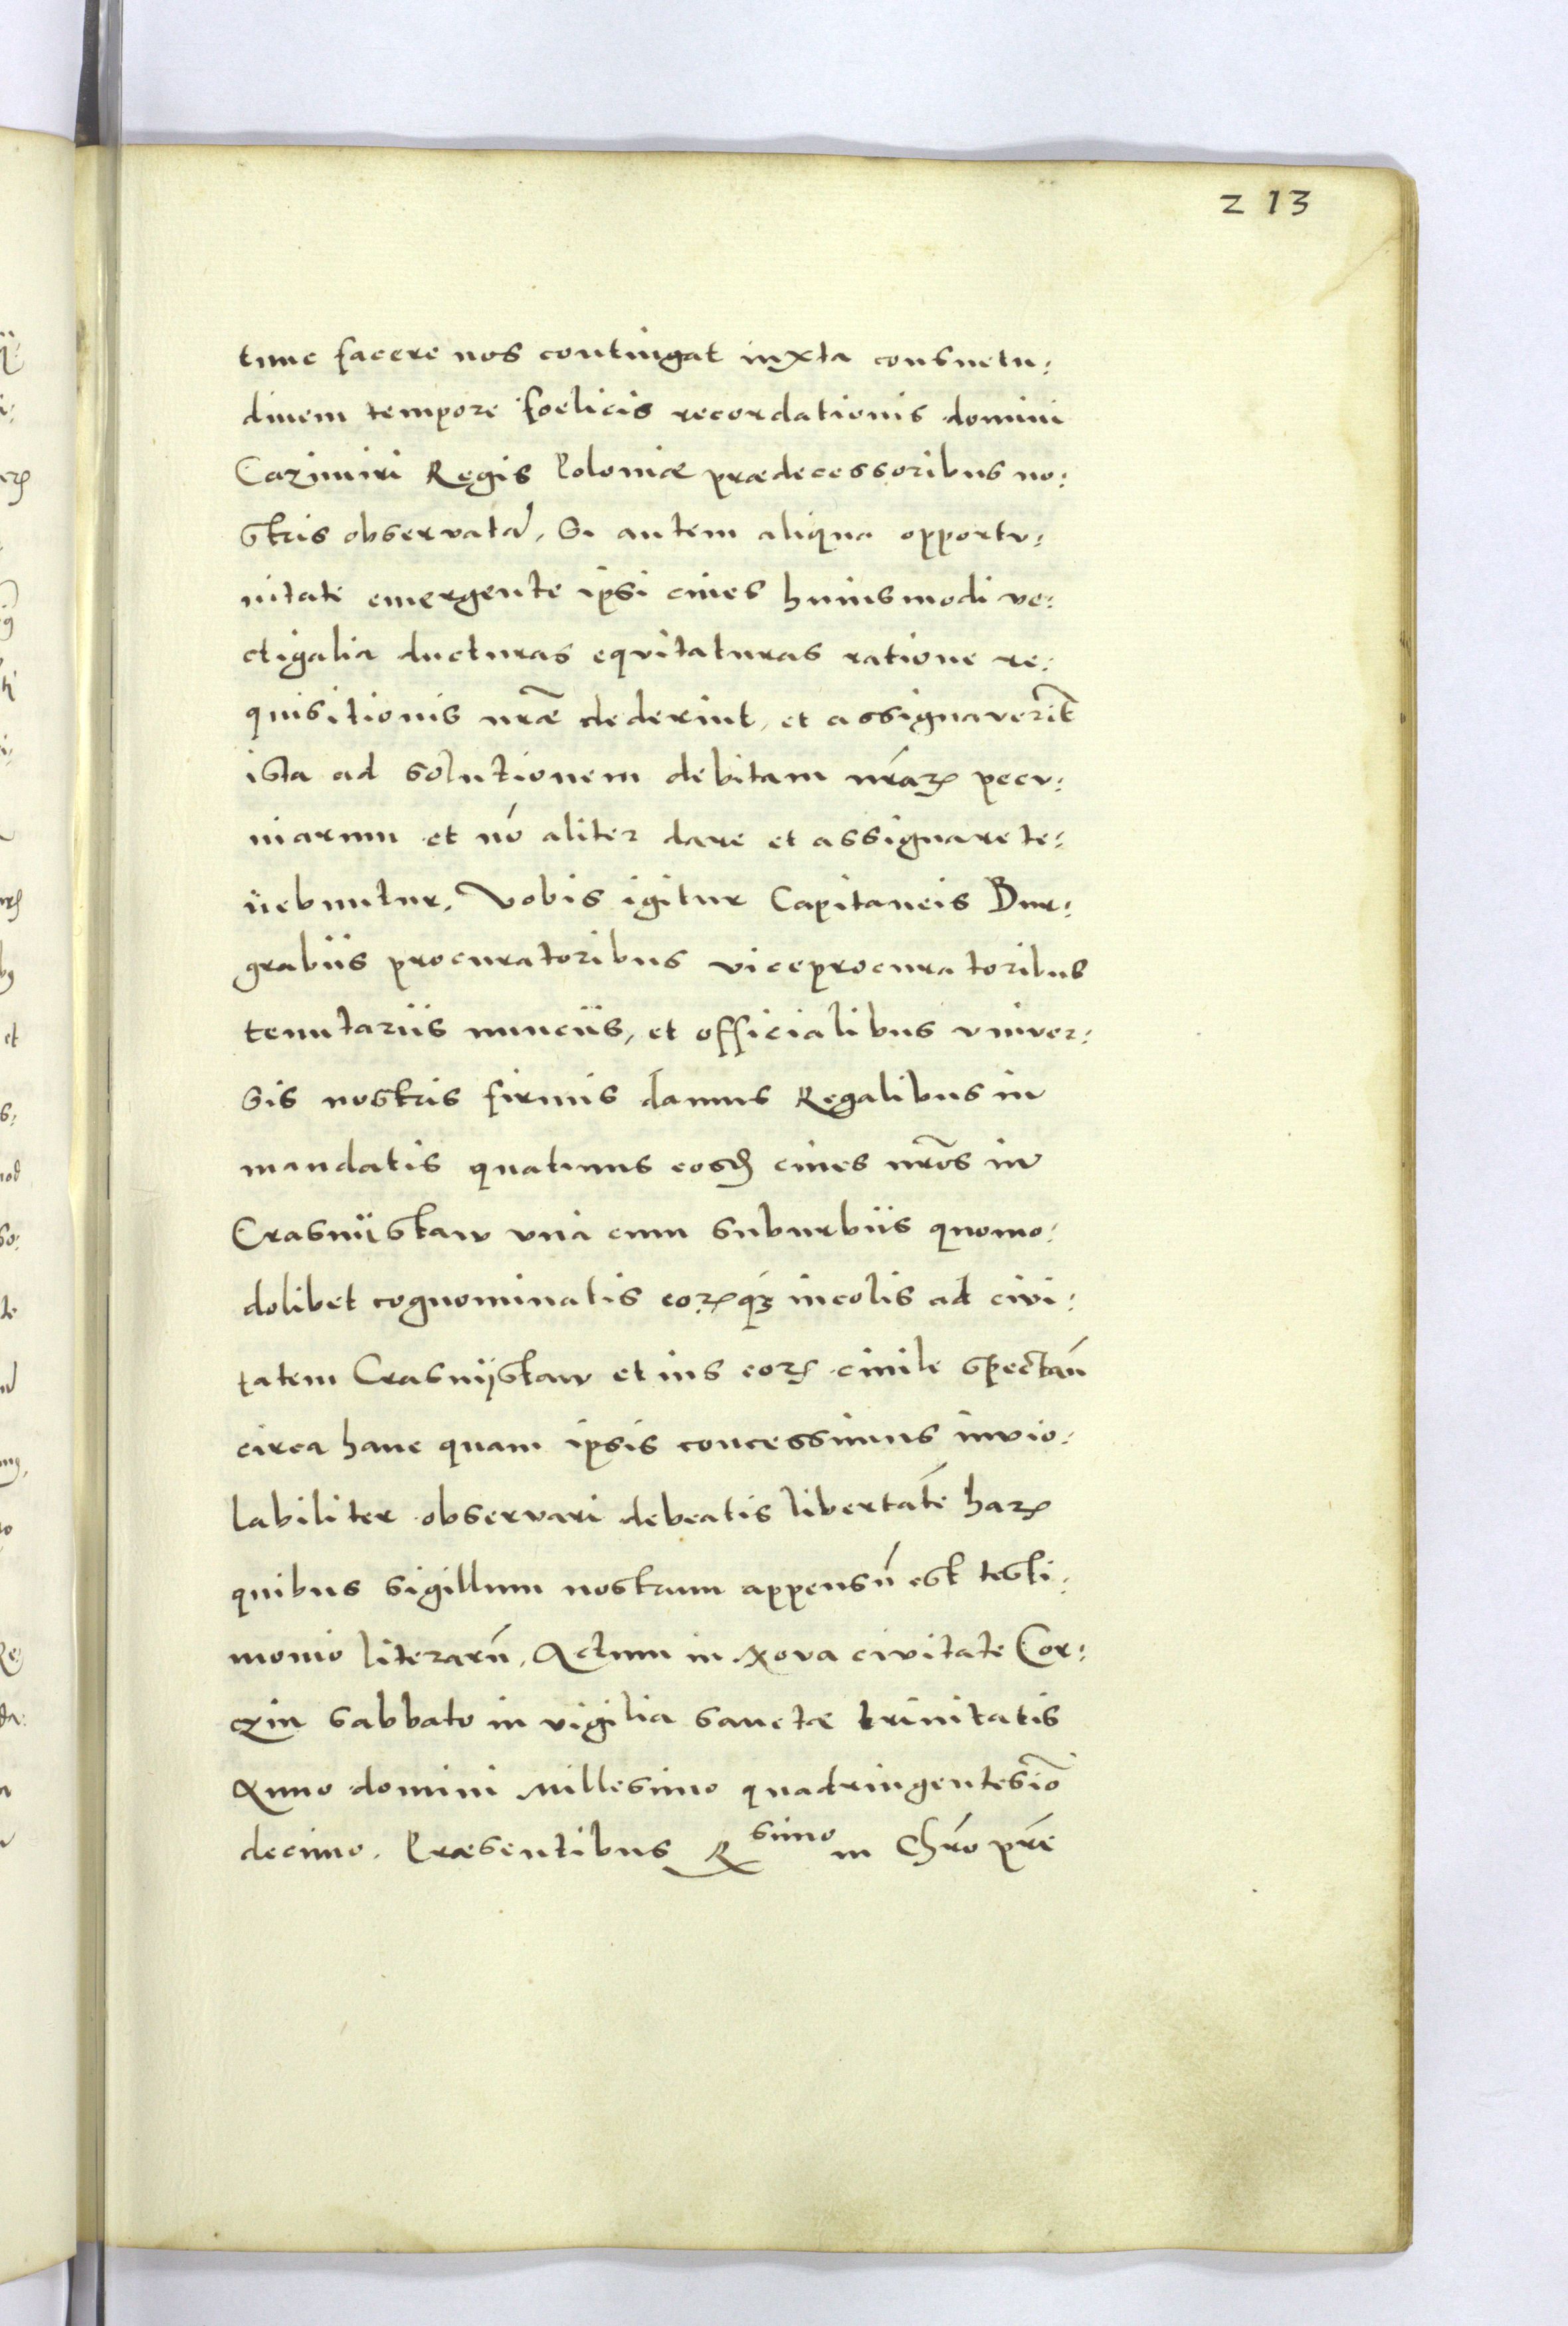 213
tunc facere nos contingat iuxta consuetu:
dinem tempore foelicis recordationis domini
Cazimiri Regis Poloniæ prædecessoribus no:
stris observatā. Si autem aliqua opportu:
nitate emergente ipsi ciues huiusmodi ve:
ctigalia ducturas equitaturas ratione re:
quisitionis nr̄æ dederint, et assignaverīt
ista ad solutionem debitam nr̄aꝝ pecu:
niarum et nō aliter dare et assignare te:
nebuntur. Vobis igitur Capitaneis Bur:
grabiis procuratoribus viceprocuratoribus
tenutariis nunciis, et officialibus vniver:
sis nostris firmis damus Regalibus in
mandatis quatinus eosd̄ ciues nr̄os in
Crasnÿstaw vna cum suburbiis quomo:
dolibet cognominatis eoꝝqꝫ incolis ad civi:
tatem Crasnÿstaw et ius eoꝝ ciuile spectan̄
circa hanc quam ipsis concessimus invio:
labiliter observari debeatis libertatē haꝝ
quibus sigillum nostrum appensū est testi:
monio literarū. Actum in Nova civitate Cor:
czin sabbato in vigilia sanctæ trinitatis
Anno domini Millesimo quadringentesīo
decimo. Præsentibus Rsimo in Chr̄o pr̄e